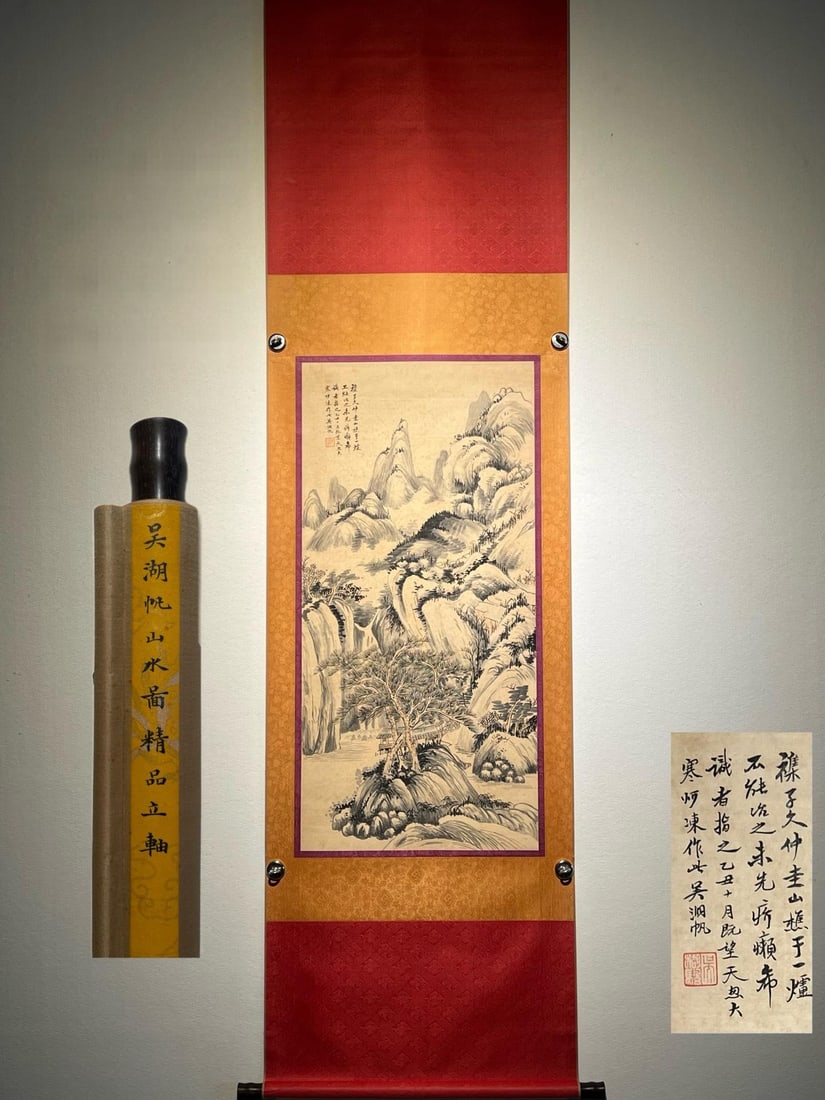 吴湖帆山水啚精品立軸
襍子久仲圭山樵于一爐
不能冶之未先疥癩希
識者指之乙丑十月既望天忽大
寒呵凍作此吳湖帆